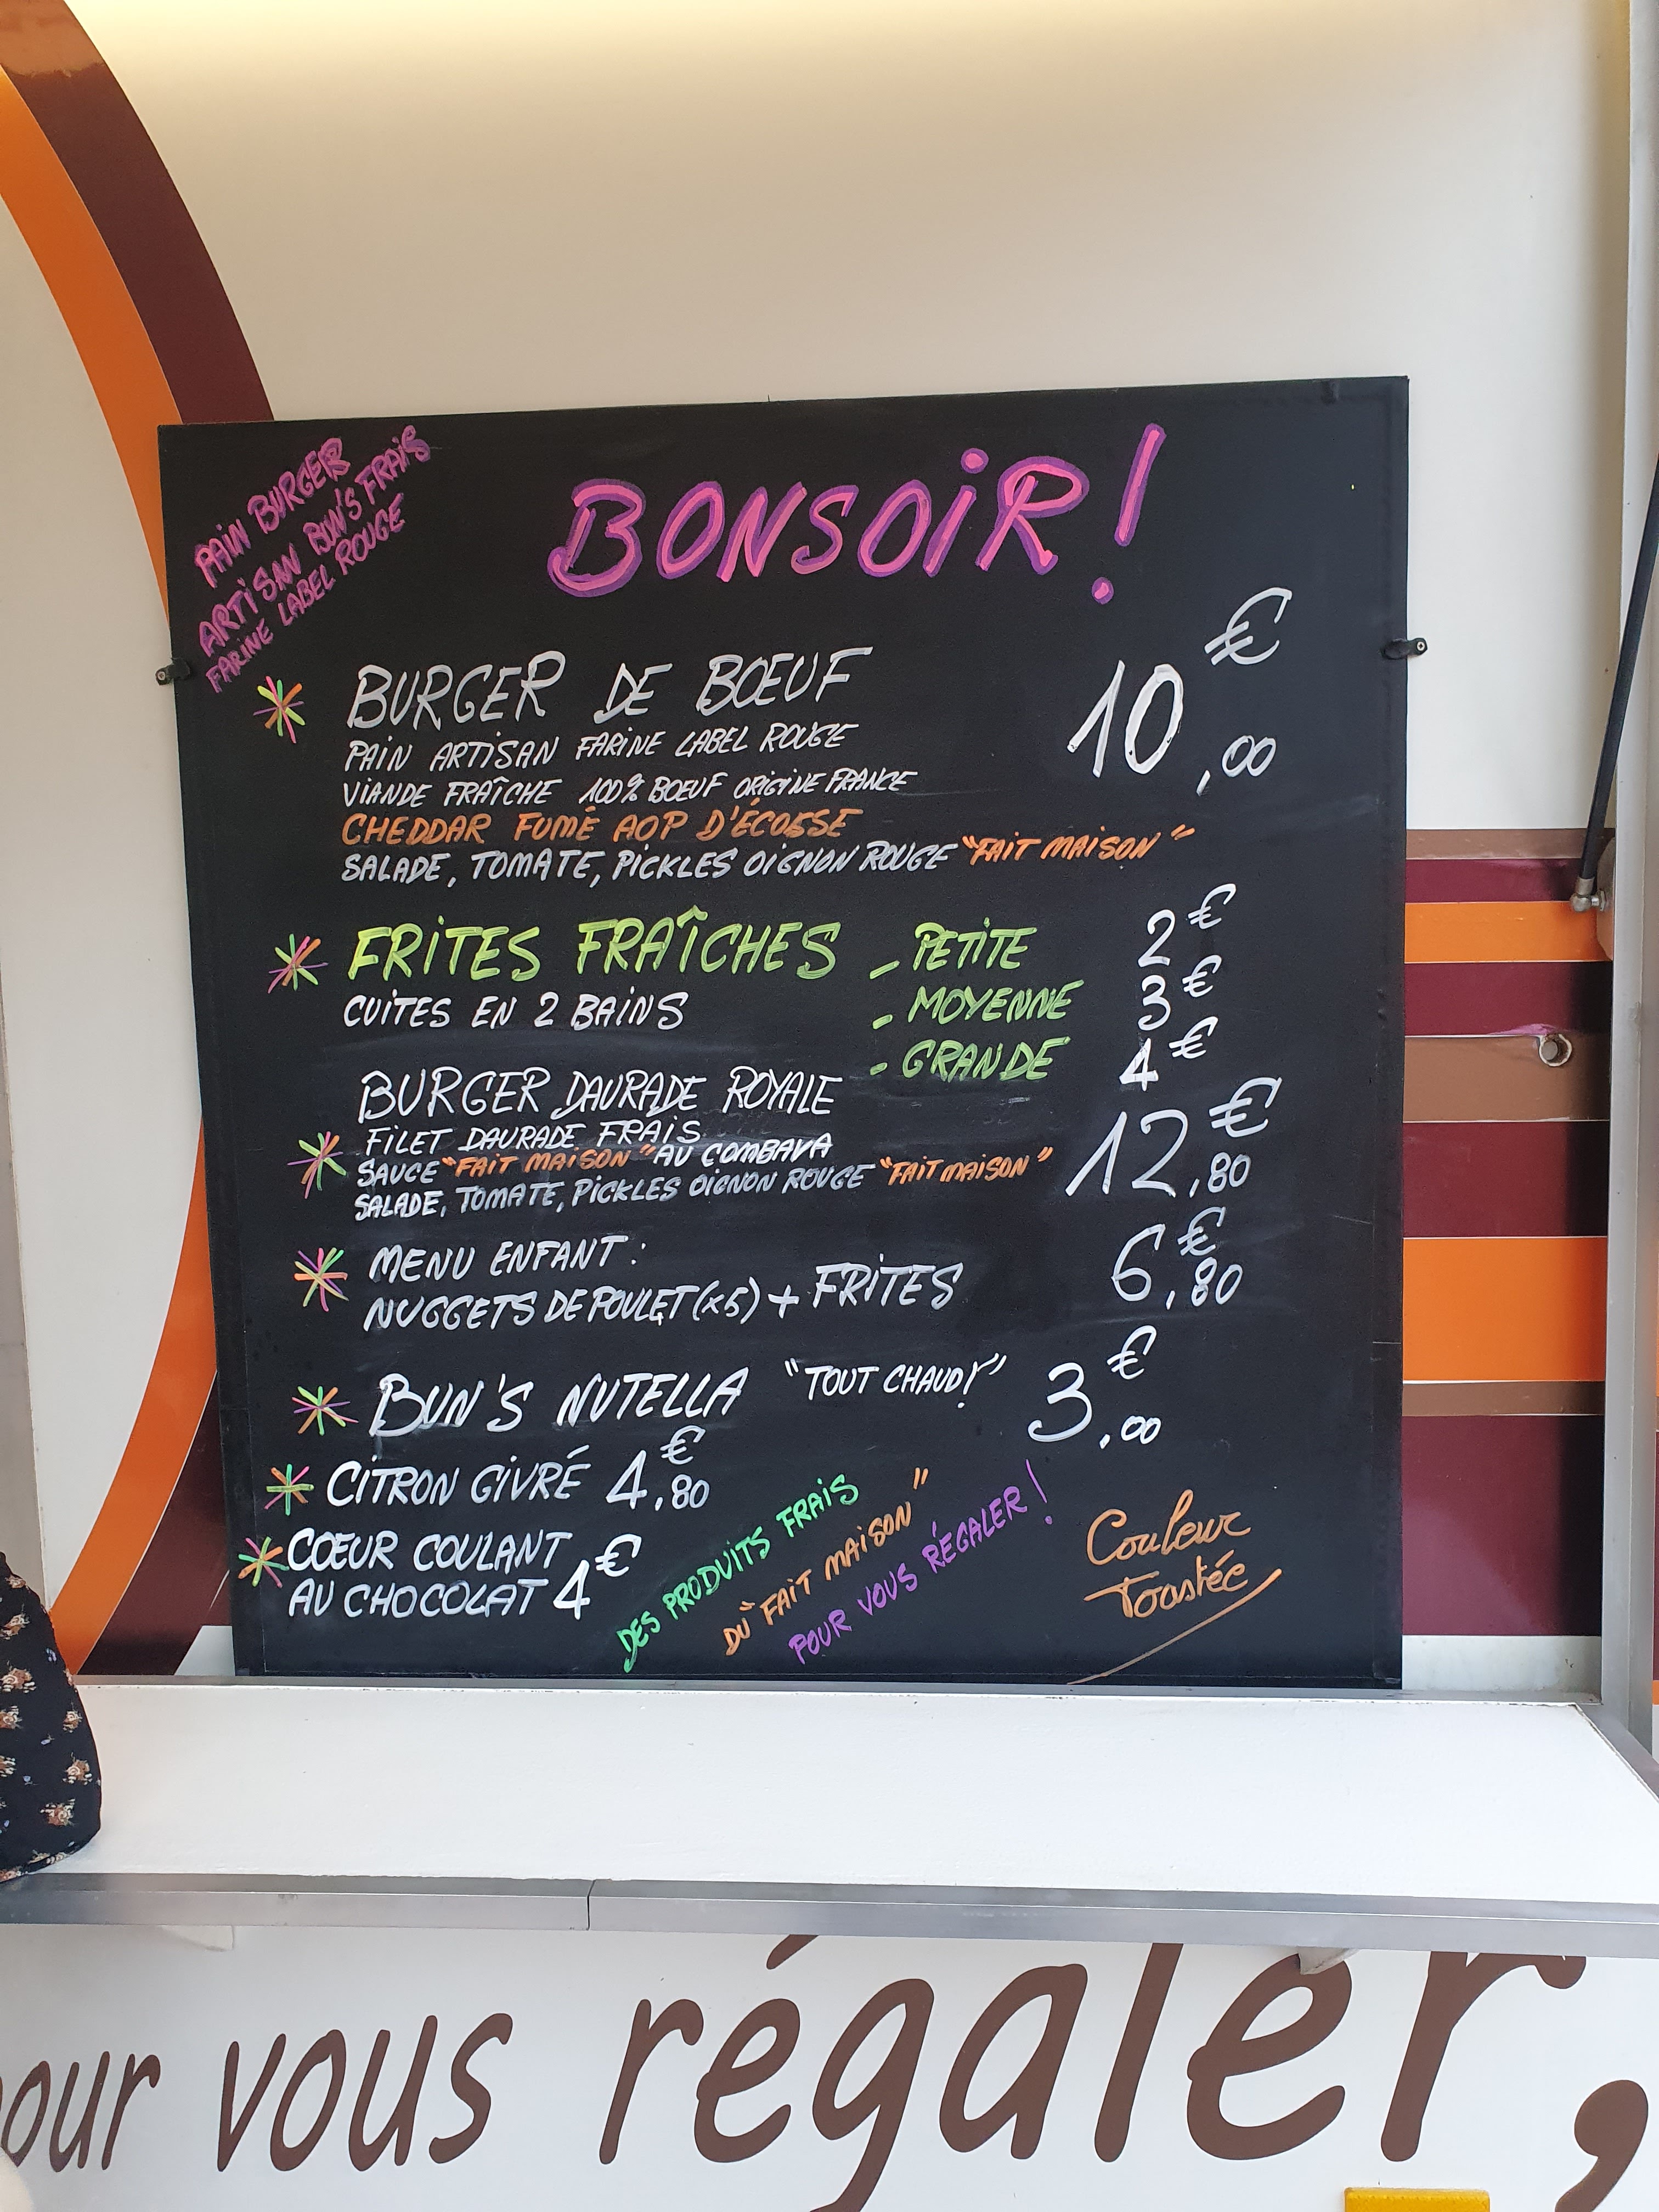 PAIN BURGER
ARTISAN BUN'S FRAIS
FARINE LABEL ROUGE
BONSOIR !
BURGER DE BŒUF 10,00 €
PAIN ARTISAN FARINE LABEL ROUGE
VIANDE FRAÎCHE 100% BŒUF ORIGINE FRANCE
CHEDDAR FUMÉ AOP D'ÉCOSSE
SALADE, TOMATE, PICKLES OIGNON ROUGE "FAIT MAISON"
FRITES FRAÎCHES - PETITE 2€
CUITES EN 2 BAINS - MOYENNE 3€
- GRANDE 4€
BURGER DAURADE ROYALE 12,80 €
FILET DAURADE FRAIS
SAUCE "FAIT MAISON" AU COMBAVA
SALADE, TOMATE, PICKLES OIGNON ROUGE "FAIT MAISON"
MENU ENFANT :
NUGGETS DE POULET (x5) + FRITES 6,80 €
BUN'S NUTELLA "TOUT CHAUD!" 3,00 €
CITRON GIVRÉ 4,80 €
CŒUR COULANT
AU CHOCOLAT 4€
DES PRODUITS FRAIS
DU "FAIT MAISON"
POUR VOUS RÉGALER !
Couleur
Toastée
pour vous régaler,